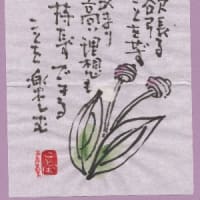 欲張る
ことをせず
あまり
高い理想も
持たずできる
ことを楽しむ